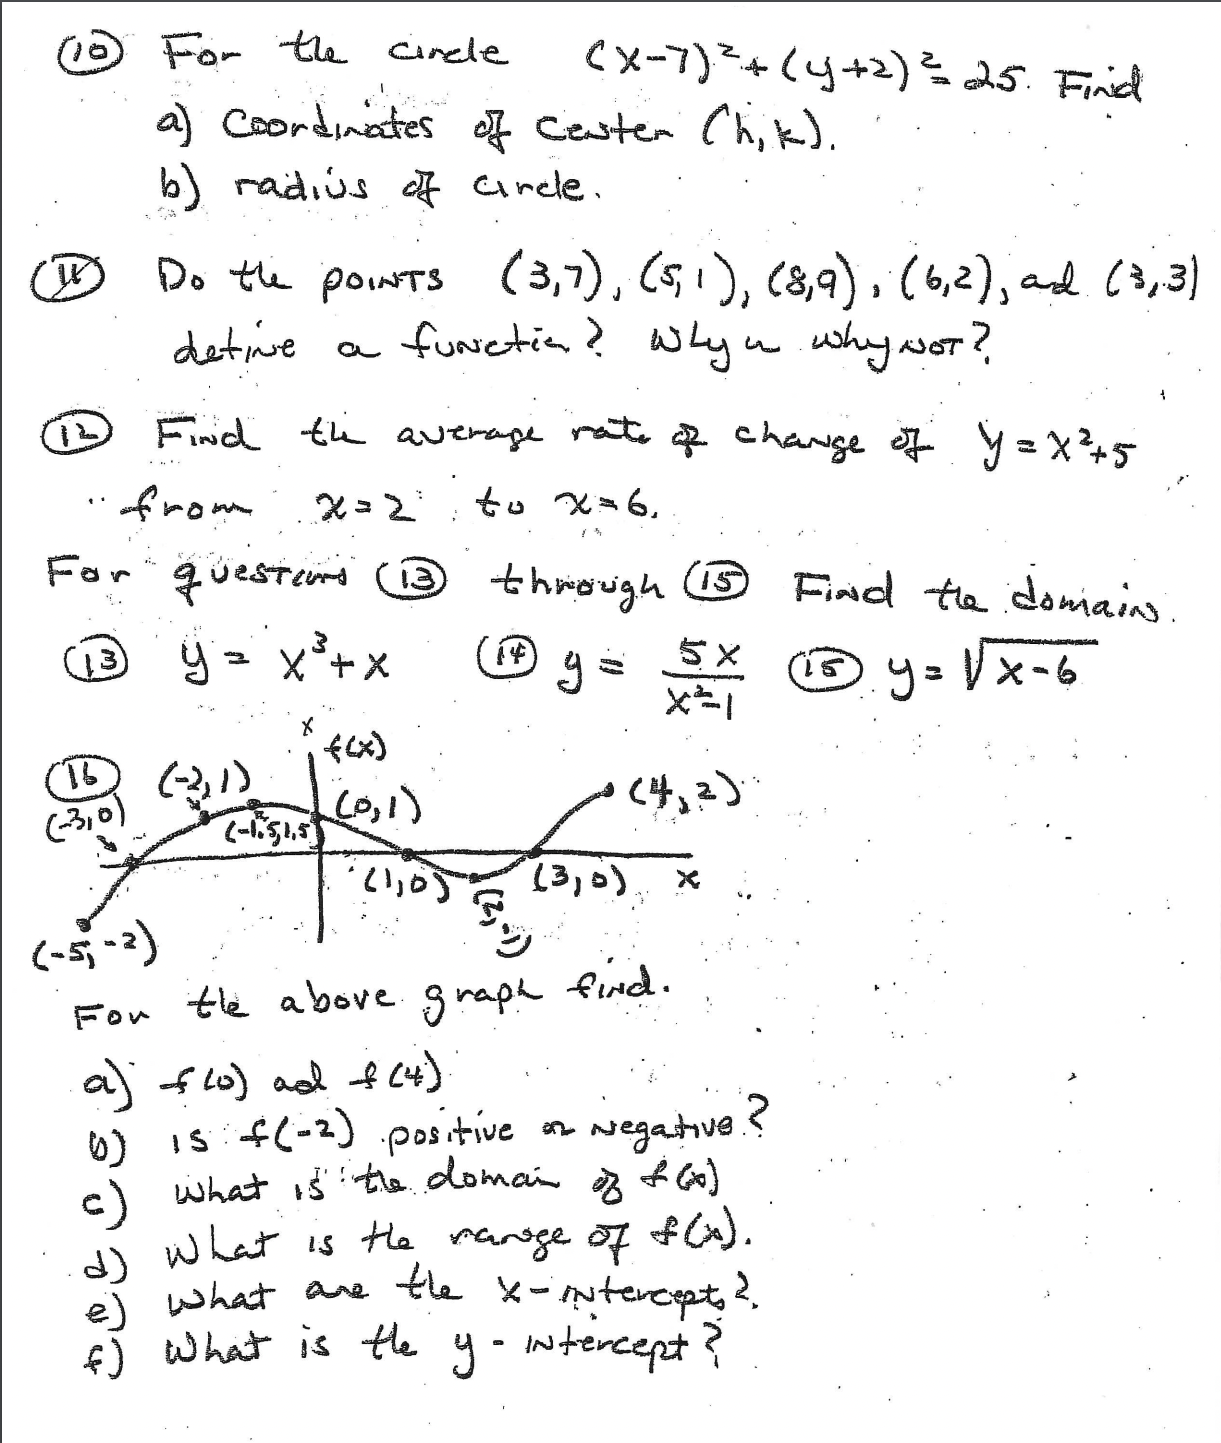 (10) For the circle (x-7)²+(y+2)²=25. Find
a) Coordinates of center (h,k).
b) radius of circle.
(11) Do the POINTS (3,7), (5,1), (8,9), (6,2), and (3,3)
define a function? Why or why NOT?
(12) Find the average rate of change of y=x²+5
from x=2 to x=6.
For questions (13) through (15) Find the domain.
(13) y = x³+x (14) y = 5x/(x²-1) (15) y=√(x-6)
x
f(x)
(16) (-2,1)
(-3,0) (0,1) (4,2)
(-1.5,1.5)
(1,0) (3,0) x
(2,-1)
(-5,-2)
For the above graph find.
a) f(0) and f(4)
b) is f(-2) positive or negative?
c) What is the domain of f(x)
d) What is the range of f(x).
e) What are the x-intercepts?
f) What is the y-intercept?